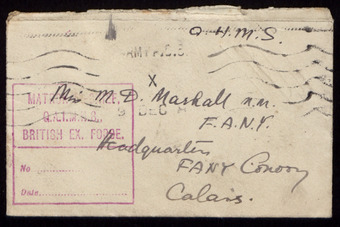 O.H.M.S.
ARMY P.O. 3
X
Miss M. D. Marshall M.M.
F.A.N.Y.
Headquarters
FANY Convoy
Calais.
DEC
Q.A.I.M.N.S.,
BRITISH EX. FORCE.
No
Date